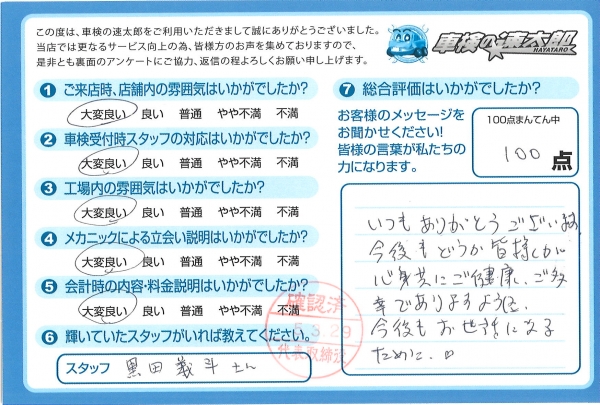 この度は、車検の速太郎をご利用いただきまして誠にありがとうございました。
当店では更なるサービス向上の為、皆様方のお声を集めておりますので、
是非とも裏面のアンケートにご協力、返信の程よろしくお願い申し上げます。
車検の速太郎
HAYATARO
1 ご来店時、店舗内の雰囲気はいかがでしたか?
大変良い 良い 普通 やや不満 不満
2 車検受付時スタッフの対応はいかがでしたか?
大変良い 良い 普通 やや不満 不満
3 工場内の雰囲気はいかがでしたか?
大変良い 良い 普通 やや不満 不満
4 メカニックによる立会い説明はいかがでしたか?
大変良い 良い 普通 やや不満 不満
5 会計時の内容・料金説明はいかがでしたか?
大変良い 良い 普通 やや不満 不満
6 輝いていたスタッフがいれば教えてください。
スタッフ 黒田 義斗 さん
確認済
5.3.29
代表取締役
7 総合評価はいかがでしたか?
お客様のメッセージを
お聞かせください!
皆様の言葉が私たちの
力になります。
100点まんてん中
100 点
いつもありがとうございます
今後もどうか皆様
心身共にご健康、ご多
幸でありますように
今後もお世話になる
ために。